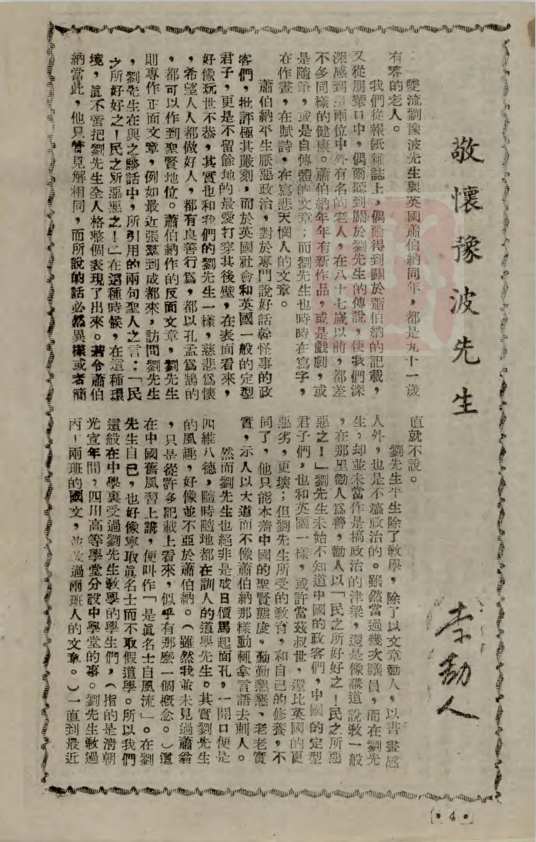 敬懷豫波先生
李劼人
雙流劉豫波先生與英國蕭伯納同年,都是九十一歲
有零的老人。
我們從報紙雜誌上,偶爾得到關於蕭伯納的記載,
又從朋輩口中,偶爾聽到關於劉先生的傳說,使我們深
深感到這兩位中外有名的老人,在八十七歲以前,都差
不多同樣的健康。蕭伯納年年有新作品,或是戲劇,或
是隨筆,或是自傳體的文章;而劉先生也時時在寫字,
在作畫,在賦詩,在寫悲天憫人的文章。
蕭伯納平生厭惡政治,對於專門說好話幹怪事的政
客們,批評極其刻,而於英國社會和英國一般的定型
君子,更是不留餘地的最愛打穿其後壁,在表面看來,
好像玩世不恭,其實也和我們的劉先生一樣,慈悲爲懷
,希望人人都做好人,都有良善行爲,都以孔孟爲鵠的
,都可以作到聖賢地位。蕭伯納作的反面文章,劉先生
則專作正面文章,例如最近張羣到成都來,訪問劉先生
,劉先生在與之談話中,所引用的兩句聖人之言:「民
之所好好之!民之所惡惡之!」在這種時候,在這種環
境,眞不啻把劉先生全人格整個表現了出來。若令蕭伯
納當此,他只管見解相同,而所說的話必然異樣或者簡
直就不說。
劉先生平生除了教學,除了以文章勸人,以書畫感
人外,也是不搞政治的。雖然當過幾次議員,而在劉先
生,却並未當作是搞政治的津梁,還是像講道說教一般
,在那里勸人爲善,勸人以「民之所好好之!民之所惡
惡之!」劉先生未始不知道中國的政客們,中國的定型
君子們,也和英國一樣,或許當茲叔世,還比英國的更
惡劣,更壞;但劉先生所受的教育,和自己的修養,不
同了,他只能本着中國的聖賢態度,勤勤懇懇,老老實
實,示人以大道而不像蕭伯納那樣動輒拿言語去刺人。
然而劉先生也絕非是成日價馬起面孔,一開口便是
四維八德,隨時隨地都在訓人的道學先生。其實劉先生
的風趣,好像並不亞於蕭伯納。(雖然我並未見過蕭翁
,只是從許多記載上看來,似乎有那麼一個概念。)這
在中國舊風習上講,便叫作「是眞名士自風流」。在劉
先生自己,也好像寧取眞名士而不取假道學。所以我們
這般在中學裏受過劉先生教學的學生們,(指的是淸朝
光宣年間,四川高等學堂分設中學堂的事。劉先生教過
丙丁兩班的國文,並改過兩班人的文章。)一直到最近
[•4•]